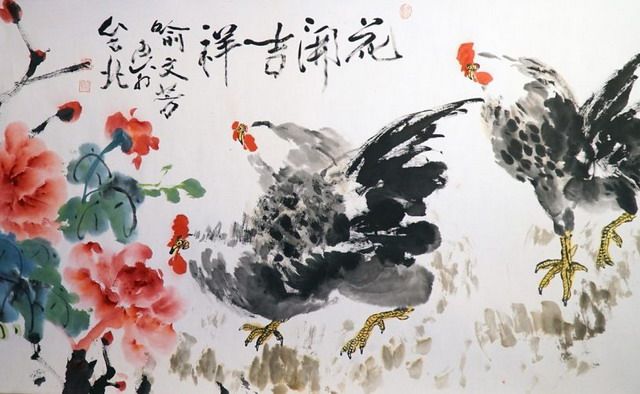 花開吉祥
喻文芳
台北